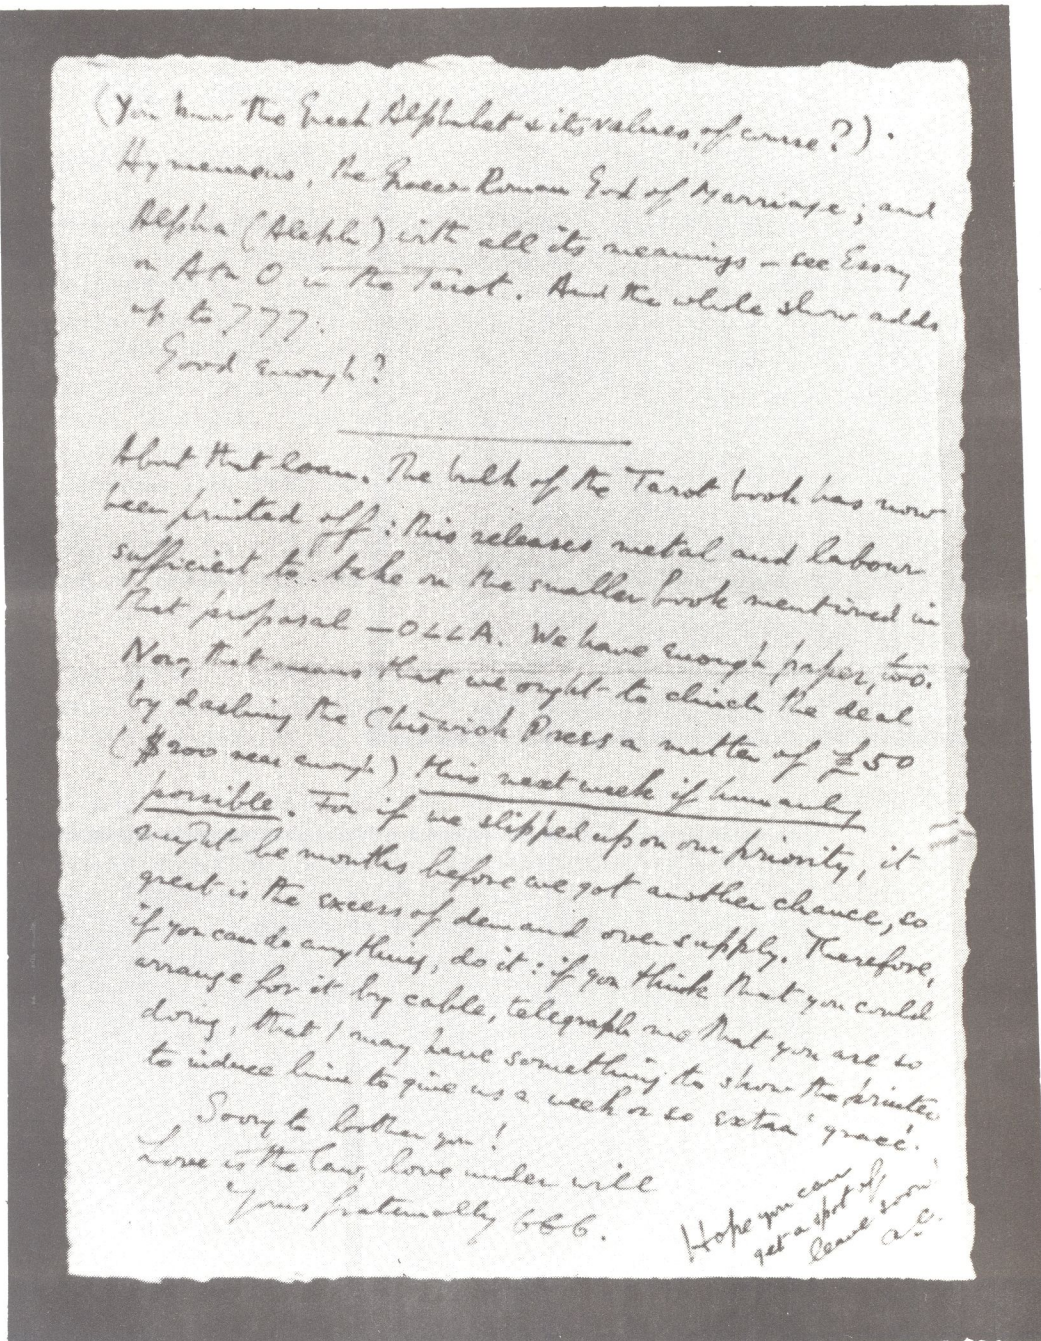 (You know the Greek Alphabet & its values, of course?).
Hymenaeus, the Graeco-Roman God of Marriage; and
Alpha (Aleph) with all its meanings – see Essay
on Atu 0 in the Tarot. And the whole show adds
up to 777.
Good enough?
About that loan. The bulk of the Tarot book has now
been printed off: this releases metal and labour
sufficient to take on the smaller book mentioned in
that proposal – OLLA. We have enough paper, too.
Now, that means that we ought to clinch the deal
by dashing the Chiswick Press a matter of £50
($200 near enough) this next week if humanly
possible. For if we slipped up on our priority, it
might be months before we got another chance, so
great is the excess of demand over supply. Therefore,
if you can do anything, do it: if you think that you could
arrange for it by cable, telegraph me that you are so
doing, that I may have something to show the printer
to induce him to give us a week or so extra 'grace'.
Sorry to bother you!
Love is the law, love under will
Yours fraternally 666.
Hope you can
get a spot of
leave soon
a.c.